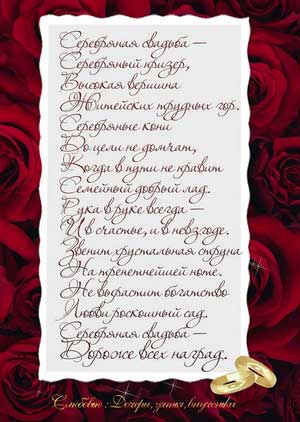 Серебряная свадьба —
Серебряный призер,
Высокая вершина
Житейских трудных гор.
Серебряные кони
До цели не домчат,
Когда в пути не правит
Семейный добрый лад.
Рука в руке всегда —
И в счастье, и в невзгоде.
Звенит хрустальная струна
На трепетнейшей ноте.
Не вырастит богатство
Любви роскошный сад.
Серебряная свадьба —
Дороже всех наград.
С любовью: Дочери, зятья, внучатки